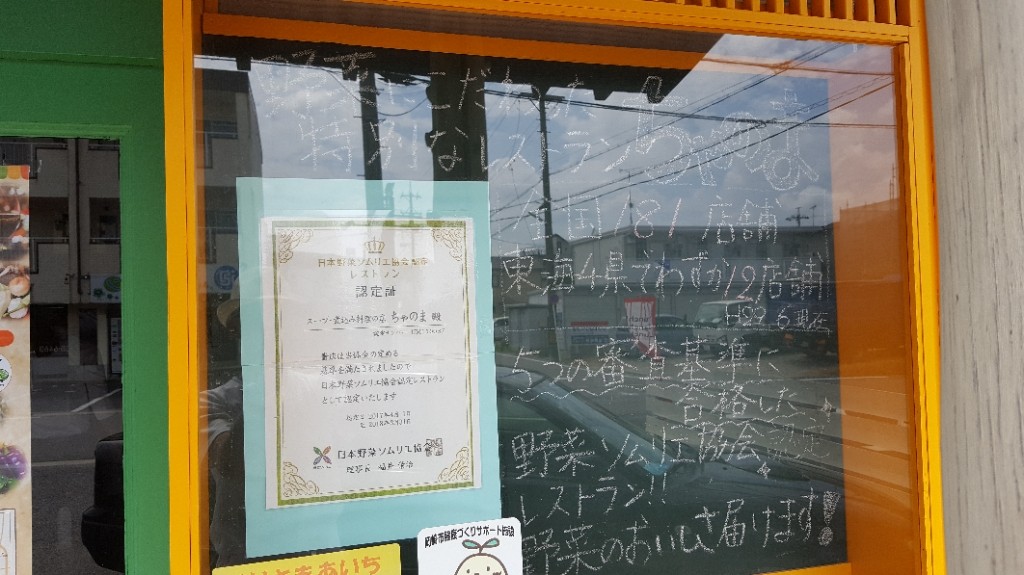 野菜にこだわった
特別なレストラン ちゃのま
全国181店舗
東海4県でわずか9店舗
H29.6現在
5つの審査基準に
合格した
野菜ソムリエ協会
レストラン!!
野菜のおいしさ届けます!
日本野菜ソムリエ協会認定
レストラン
認定証
スープ・煮込み料理の店 ちゃのま 殿
貴店は当協会の定める
基準を満たされましたので
日本野菜ソムリエ協会認定レストラン
として認定いたします
日本野菜ソムリエ協会
理事長 福井 栄治
岡崎市健康づくりサポート店
あいち